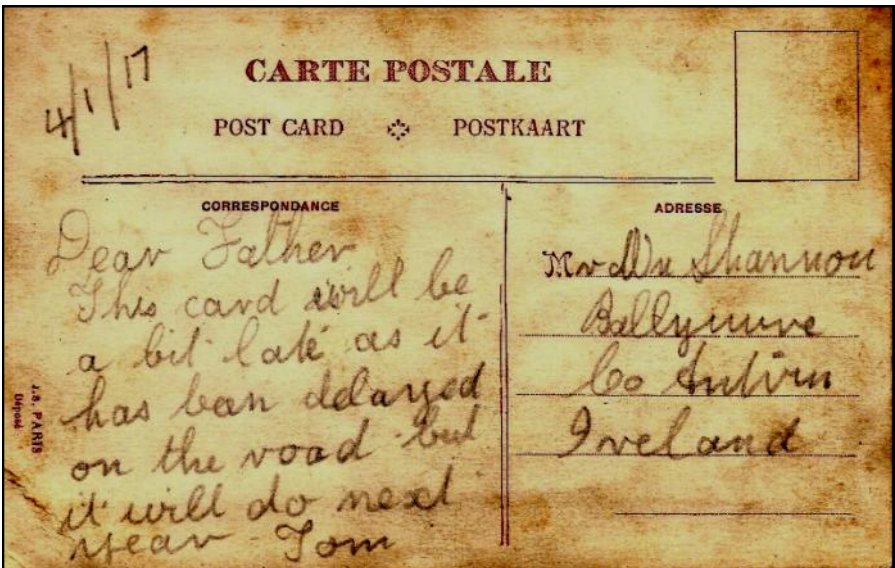 4/1/17
CARTE POSTALE
POST CARD POSTKAART
CORRESPONDANCE
Dear Father
This card will be
a bit late as it
has been delayed
on the road but
it will do next
year Tom
ADRESSE
Mr Wm Shannon
Ballynure
Co Antrim
Ireland
J.S. PARIS
Déposé